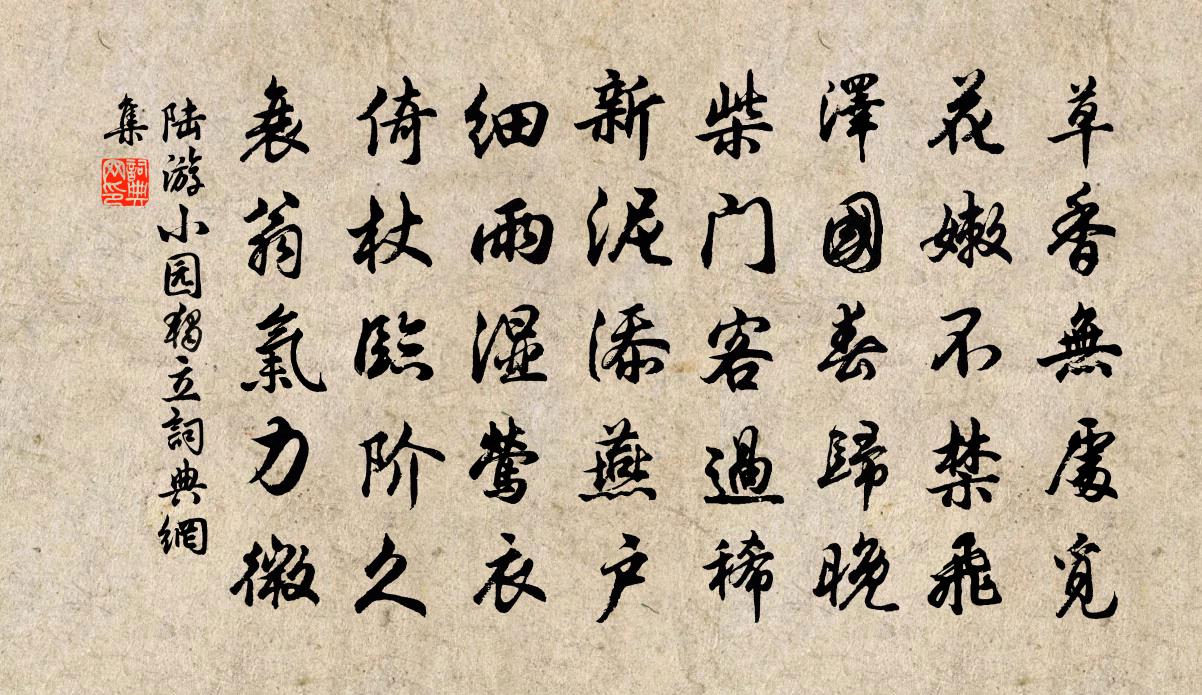 草香無處覓
花嫩不禁飛
澤國春歸晚
柴门客過稀
新泥添燕户
細雨濕鶯衣
倚杖臨阶久
衰翁氣力微
陆游小园獨立詞典網
集
詞典
网印